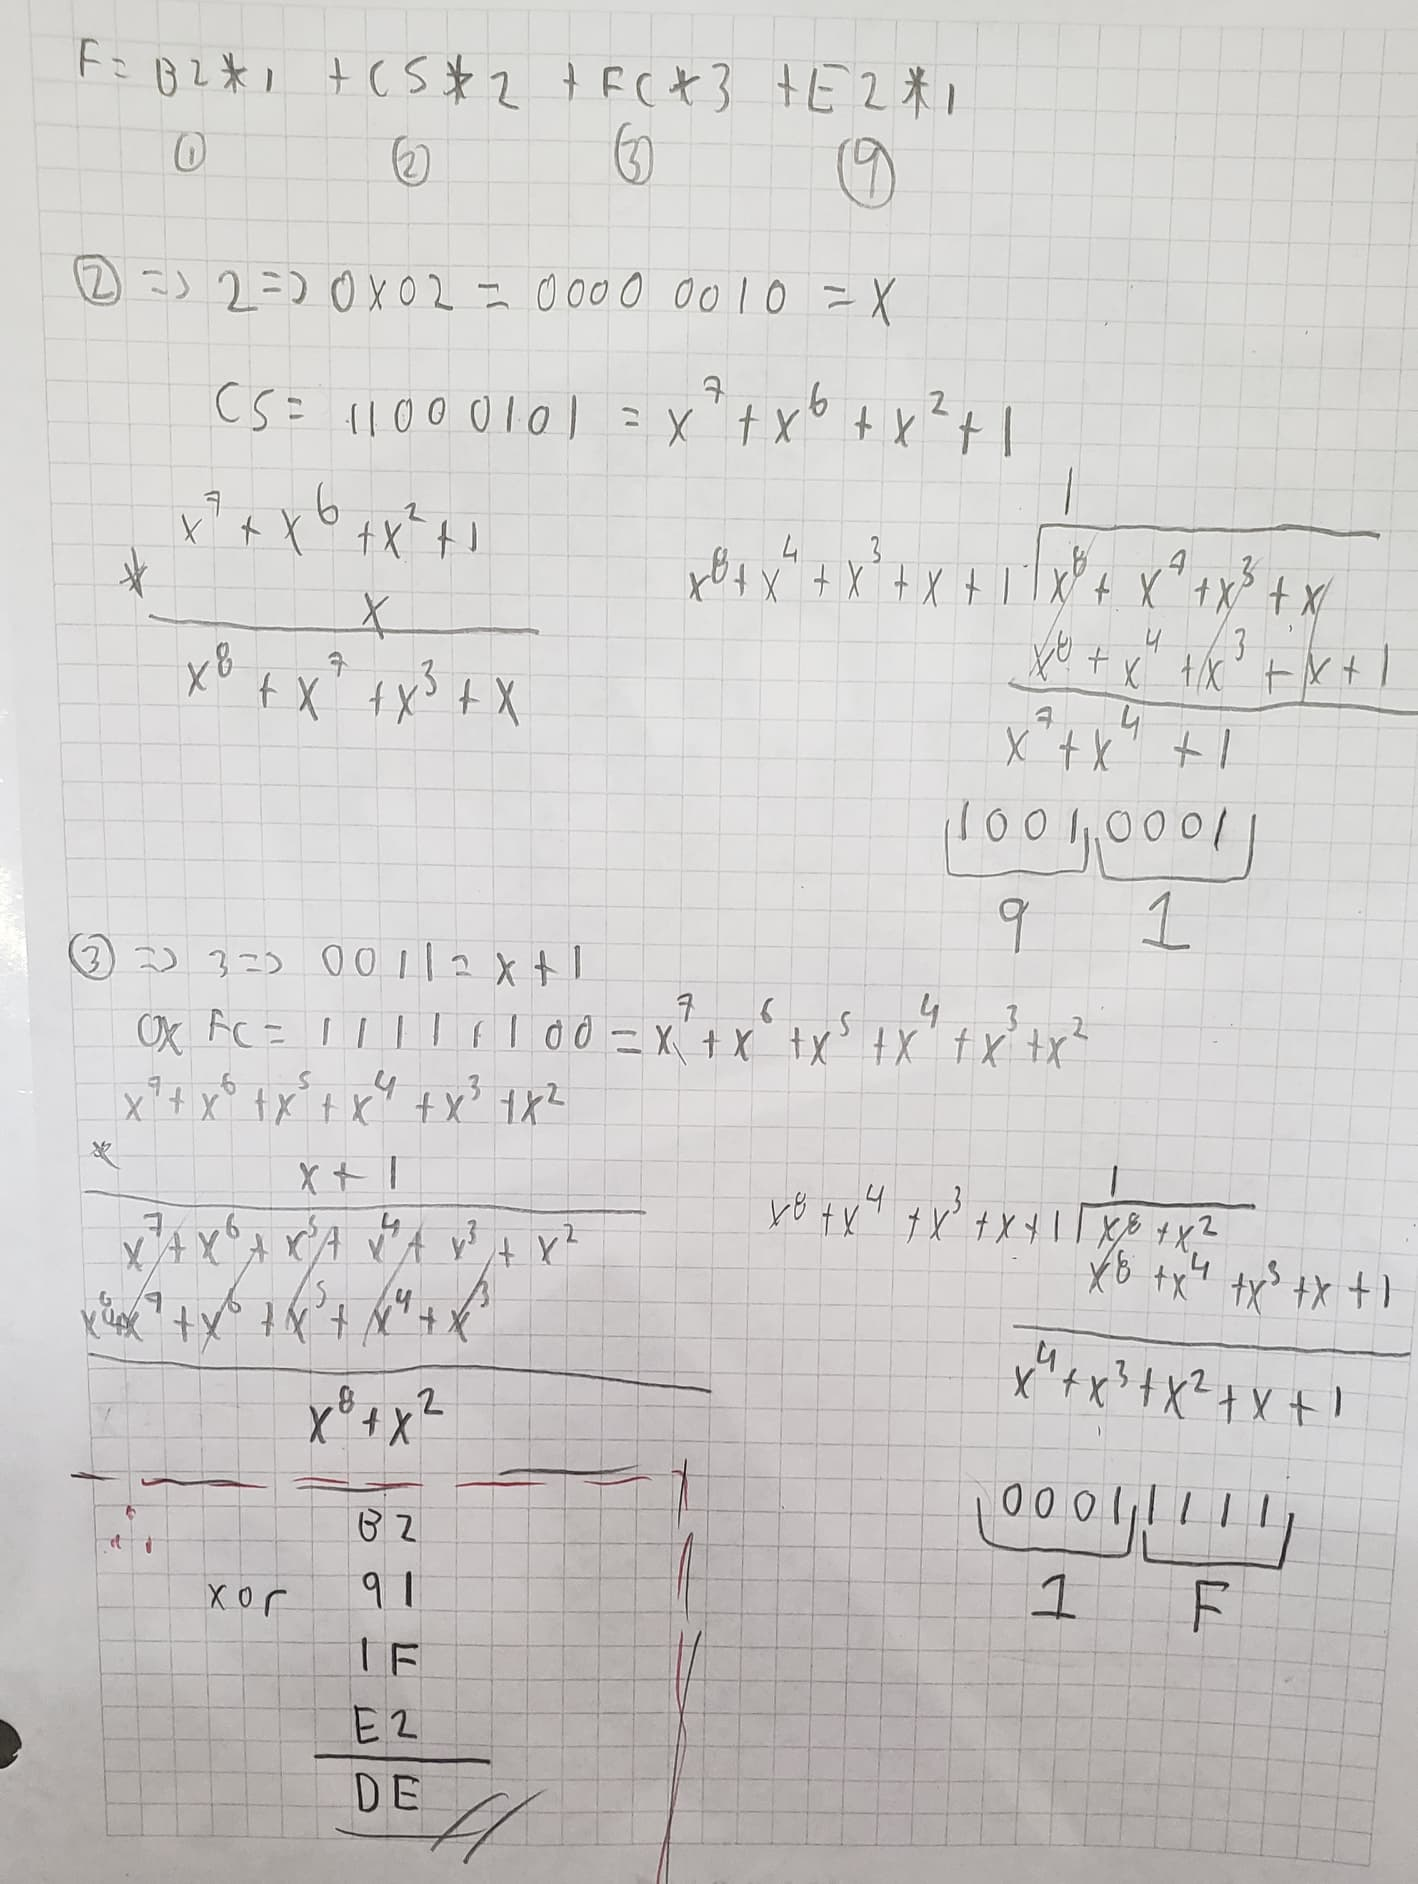 F= B2*1 + C5*2 + FC*3 + E2*1
① ② ③ ④
② => 2 => 0x02 = 0000 0010 = x
C5 = 11000101 = x⁷ + x⁶ + x² + 1
x⁷ + x⁶ + x² + 1
*
x
x⁸ + x⁷ + x³ + x
1
x⁸ + x⁴ + x³ + x + 1 x⁸ + x⁷ + x³ + x
x⁸ + x⁴ + x³ + x + 1
x⁷ + x⁴ + 1
1001 0001
9 1
③ => 3 => 0011 = x + 1
0x FC = 11111100 = x⁷ + x⁶ + x⁵ + x⁴ + x³ + x²
x⁷ + x⁶ + x⁵ + x⁴ + x³ + x²
*
x + 1
x⁷ + x⁶ + x⁵ + x⁴ + x³ + x²
x⁸ + x⁷ + x⁶ + x⁵ + x⁴ + x³
x⁸ + x²
1
x⁸ + x⁴ + x³ + x + 1 x⁸ + x²
x⁸ + x⁴ + x³ + x + 1
x⁴ + x³ + x² + x + 1
0001 1111
1 F
∴ B2
xor 91
1F
E2
DE